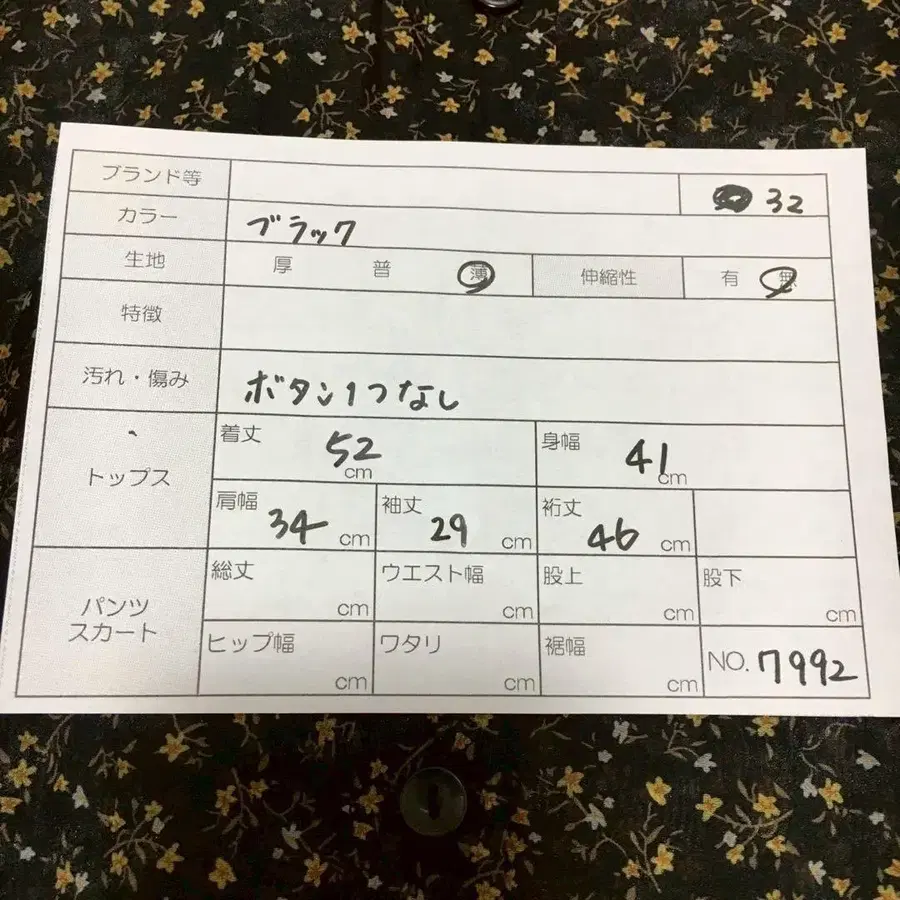 ブランド等 32
カラー ブラック
生地 厚 普 薄 伸縮性 有 無
特徴
汚れ・傷み ボタン1つなし
トップス
着丈 52 cm 身幅 41 cm
肩幅 34 cm 袖丈 29 cm 裄丈 46 cm
パンツ
スカート
総丈 cm ウエスト幅 cm 股上 cm 股下 cm
ヒップ幅 cm ワタリ cm 裾幅 cm NO. 7992